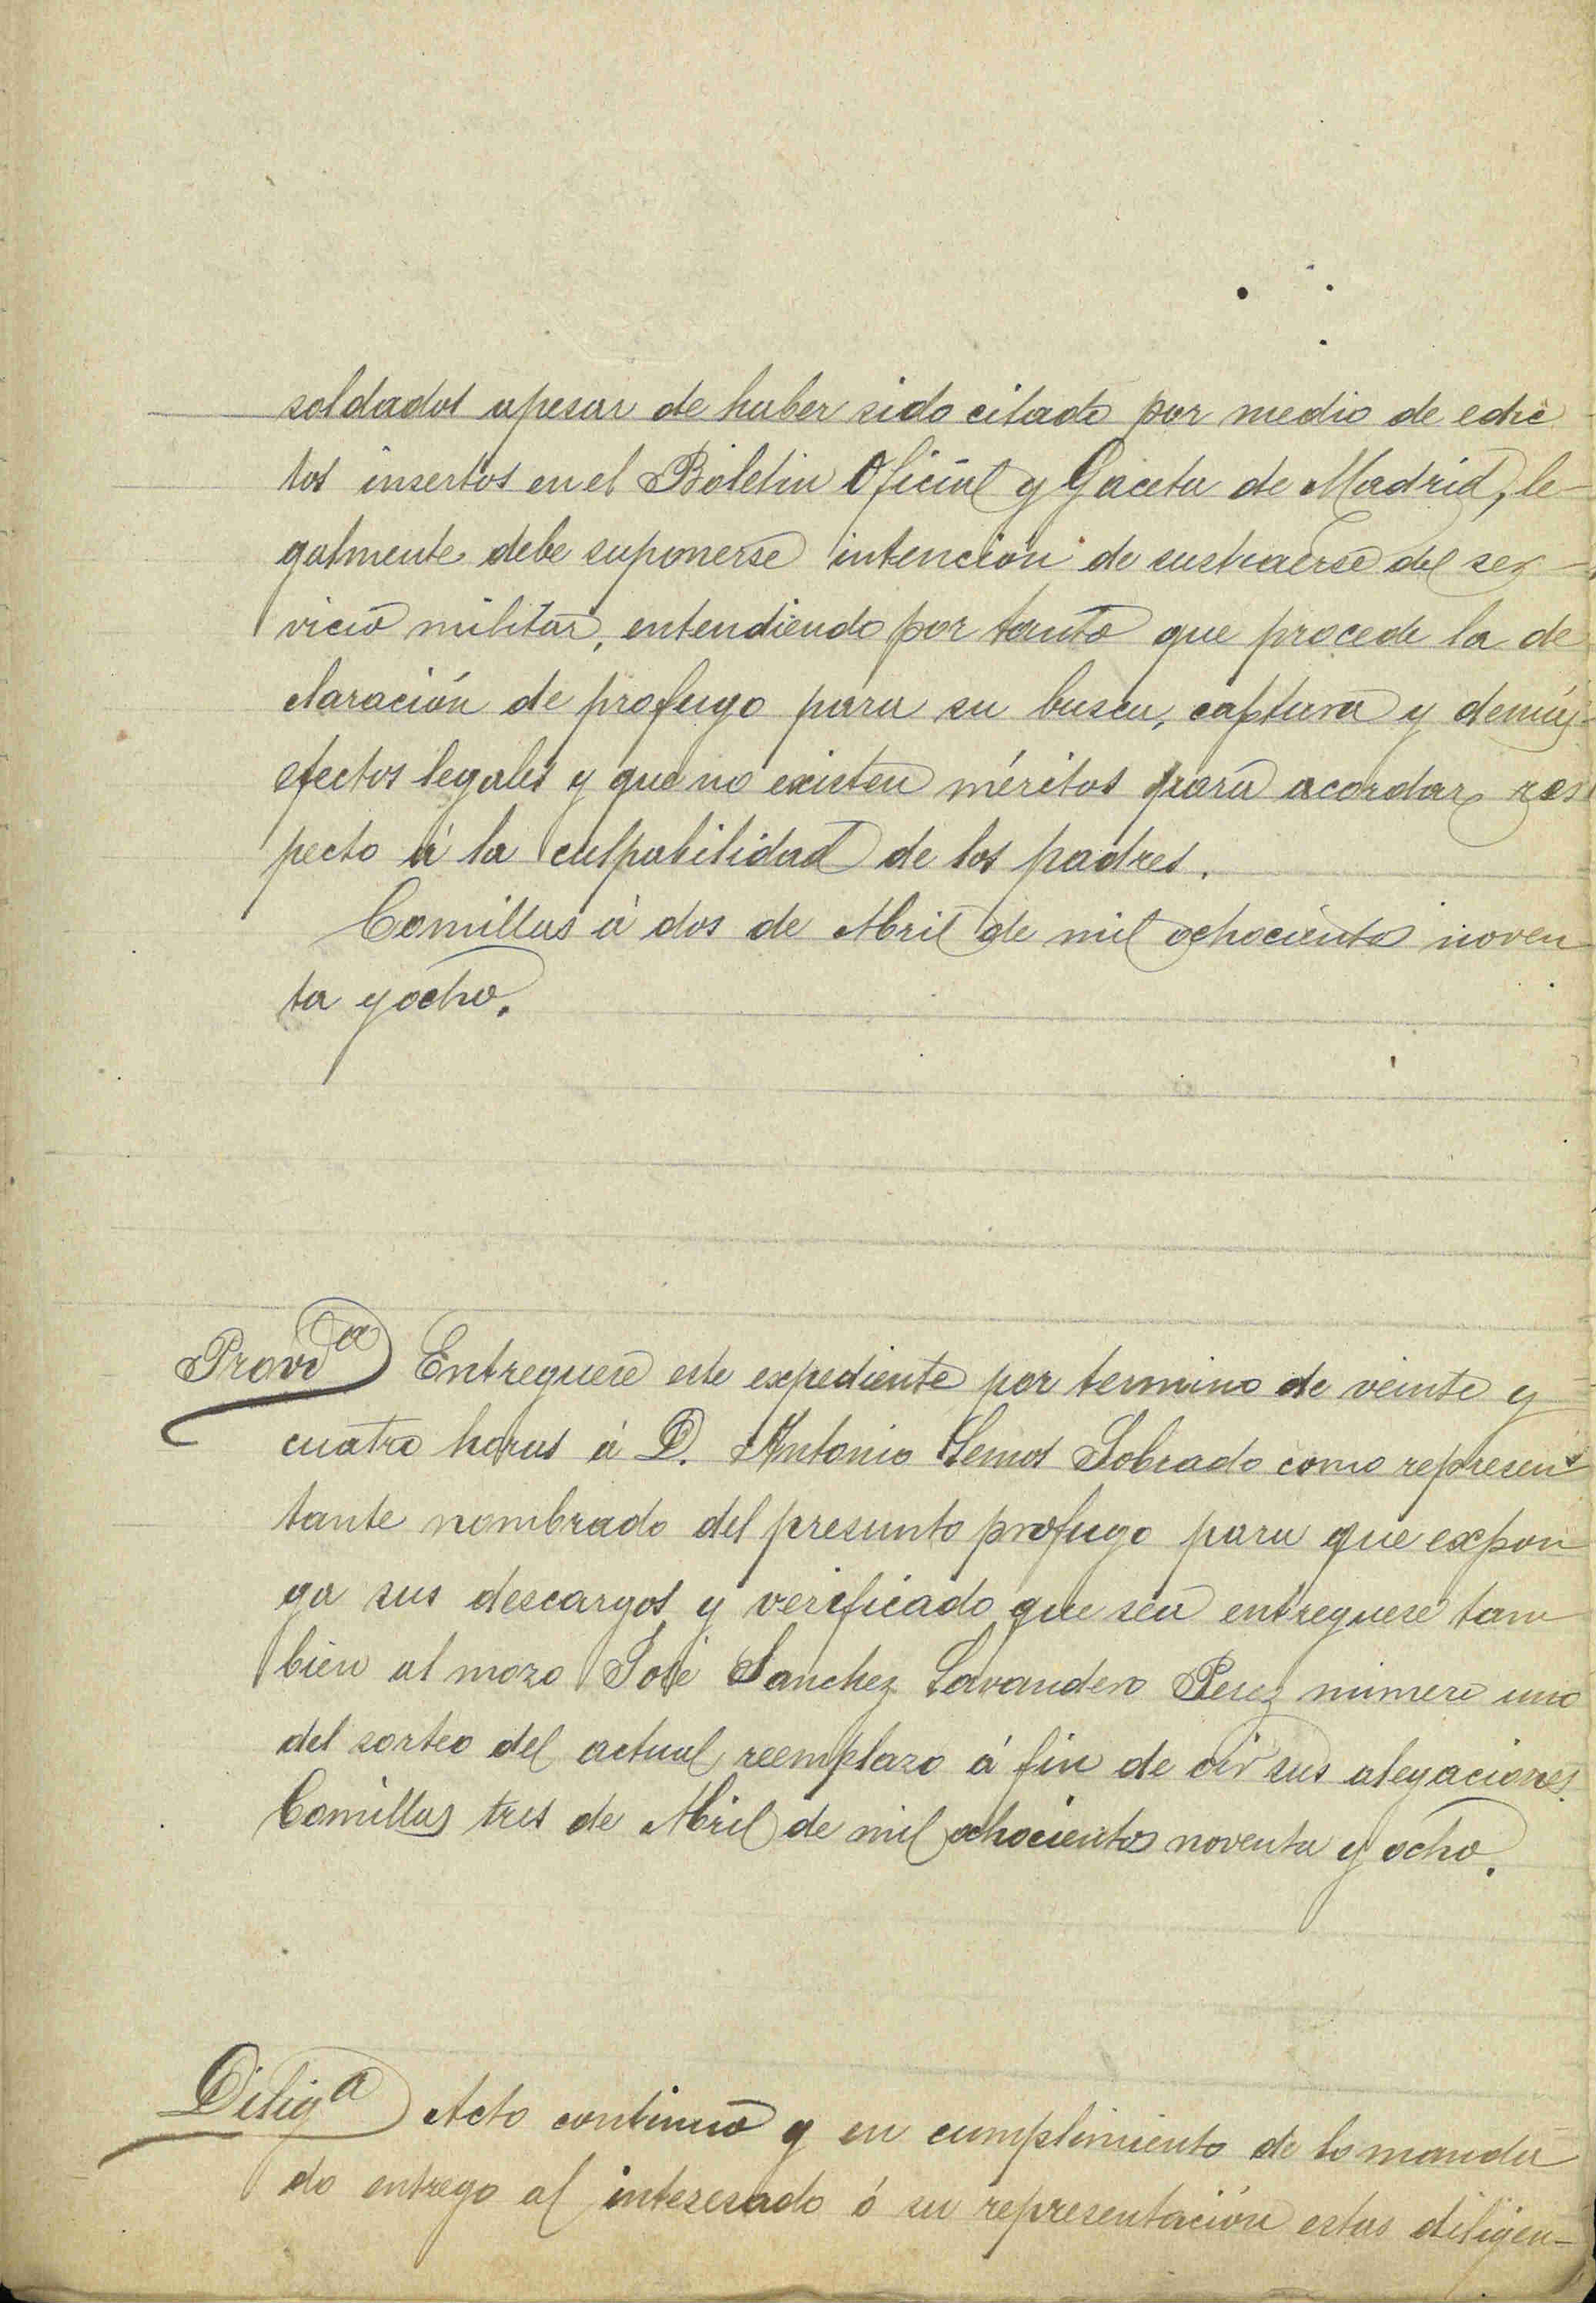 soldados apesar de haber sido citado por medio de edic
tos insertos en el Boletin Oficial y Gaceta de Madrid, le-
galmente debe suponerse intención de sustraerse del ser-
vicio militar, entendiendo por tanto que procede la de
claración de profugo para su busca, captura y demás
efectos legales y que no existen méritos para acordar res
pecto á la culpabilidad de los padres.
Comillas á dos de Abril de mil ochocientos noven
ta y ocho.
Provida Entreguese este expediente por termino de veinte y
cuatro horas á D. Antonio Lemos Sobrado como represen
tante nombrado del presunto profugo para que expon
ga sus descargos y verificado que sea entreguese tam
bien al mozo José Sanchez Lavandero Perez numero uno
del sorteo del actual reemplazo á fin de oir sus alegaciones.
Comillas tres de Abril de mil ochocientos noventa y ocho.
Diliga Acto continuo y en cumplimiento de lo manda
do entrego al interesado ó su representación estas diligen-